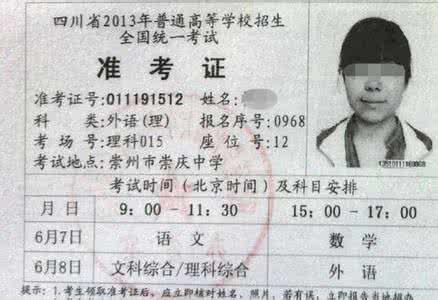 四川省2013年普通高等学校招生
全国统一考试
准考证
准考证号:011191512 姓名:
科 类:外语(理) 报名序号:0968
考 场 号:理科015 座 位 号:12
考试地点:崇州市崇庆中学
考试时间(北京时间)及科目安排
月 日 9:00-11:30 15:00-17:00
6月7日 语文 数学
6月8日 文科综合/理科综合 外语
提示:1.考生领取准考证后,应立即核对姓名、照片,若有误,立即报告当地招办